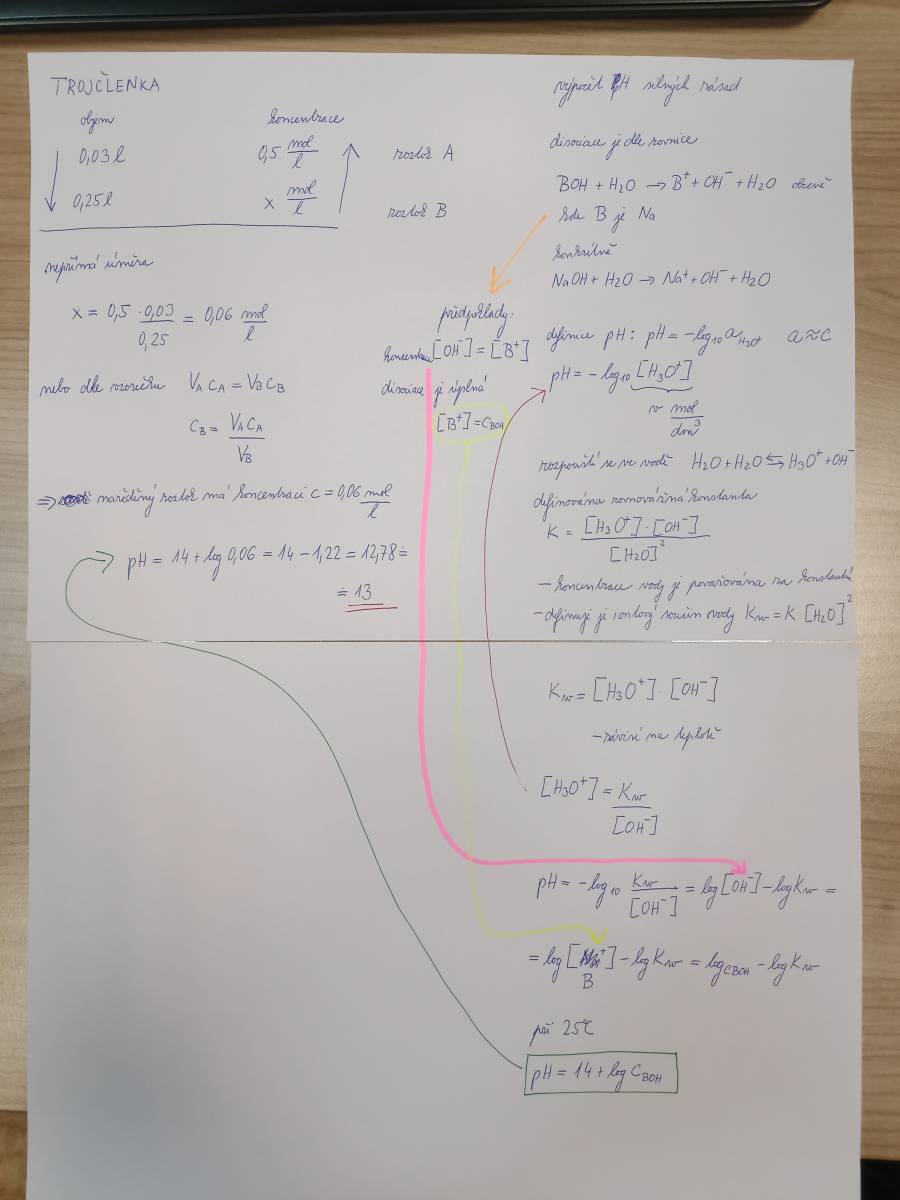 TROJČLENKA
objem koncentrace
0,03 l 0,5 mol/l roztok A
0,25 l x mol/l roztok B
nepřímá úměra
x = 0,5 · 0,03 / 0,25 = 0,06 mol/l
nebo dle vzorečku V_A C_A = V_B C_B
C_B = V_A C_A / V_B
⇒ naředěný roztok má koncentraci c = 0,06 mol/l
pH = 14 + log 0,06 = 14 − 1,22 = 12,78 ≐
≐ 13
předpoklady:
koncentrace [OH⁻] = [B⁺]
disociace je úplná
[B⁺] = C_BOH
výpočet pH silných zásad
disociace je dle rovnice
BOH + H₂O → B⁺ + OH⁻ + H₂O obecně
kde B je Na
konkrétně
NaOH + H₂O → Na⁺ + OH⁻ + H₂O
definice pH: pH = −log₁₀ a_H₃O⁺ a ≈ c
pH = −log₁₀ [H₃O⁺]
v mol/dm³
rozpouští se ve vodě H₂O + H₂O ⇆ H₃O⁺ + OH⁻
definována rovnovážná konstanta
K = [H₃O⁺] · [OH⁻] / [H₂O]²
– koncentrace vody je považována za konstantní
– definuje je iontový součin vody Kw = K [H₂O]²
Kw = [H₃O⁺] · [OH⁻]
– závisí na teplotě
[H₃O⁺] = Kw / [OH⁻]
pH = −log₁₀ Kw / [OH⁻] = log [OH⁻] − log Kw =
= log [B⁺] − log Kw = log C_BOH − log Kw
při 25°C
pH = 14 + log C_BOH